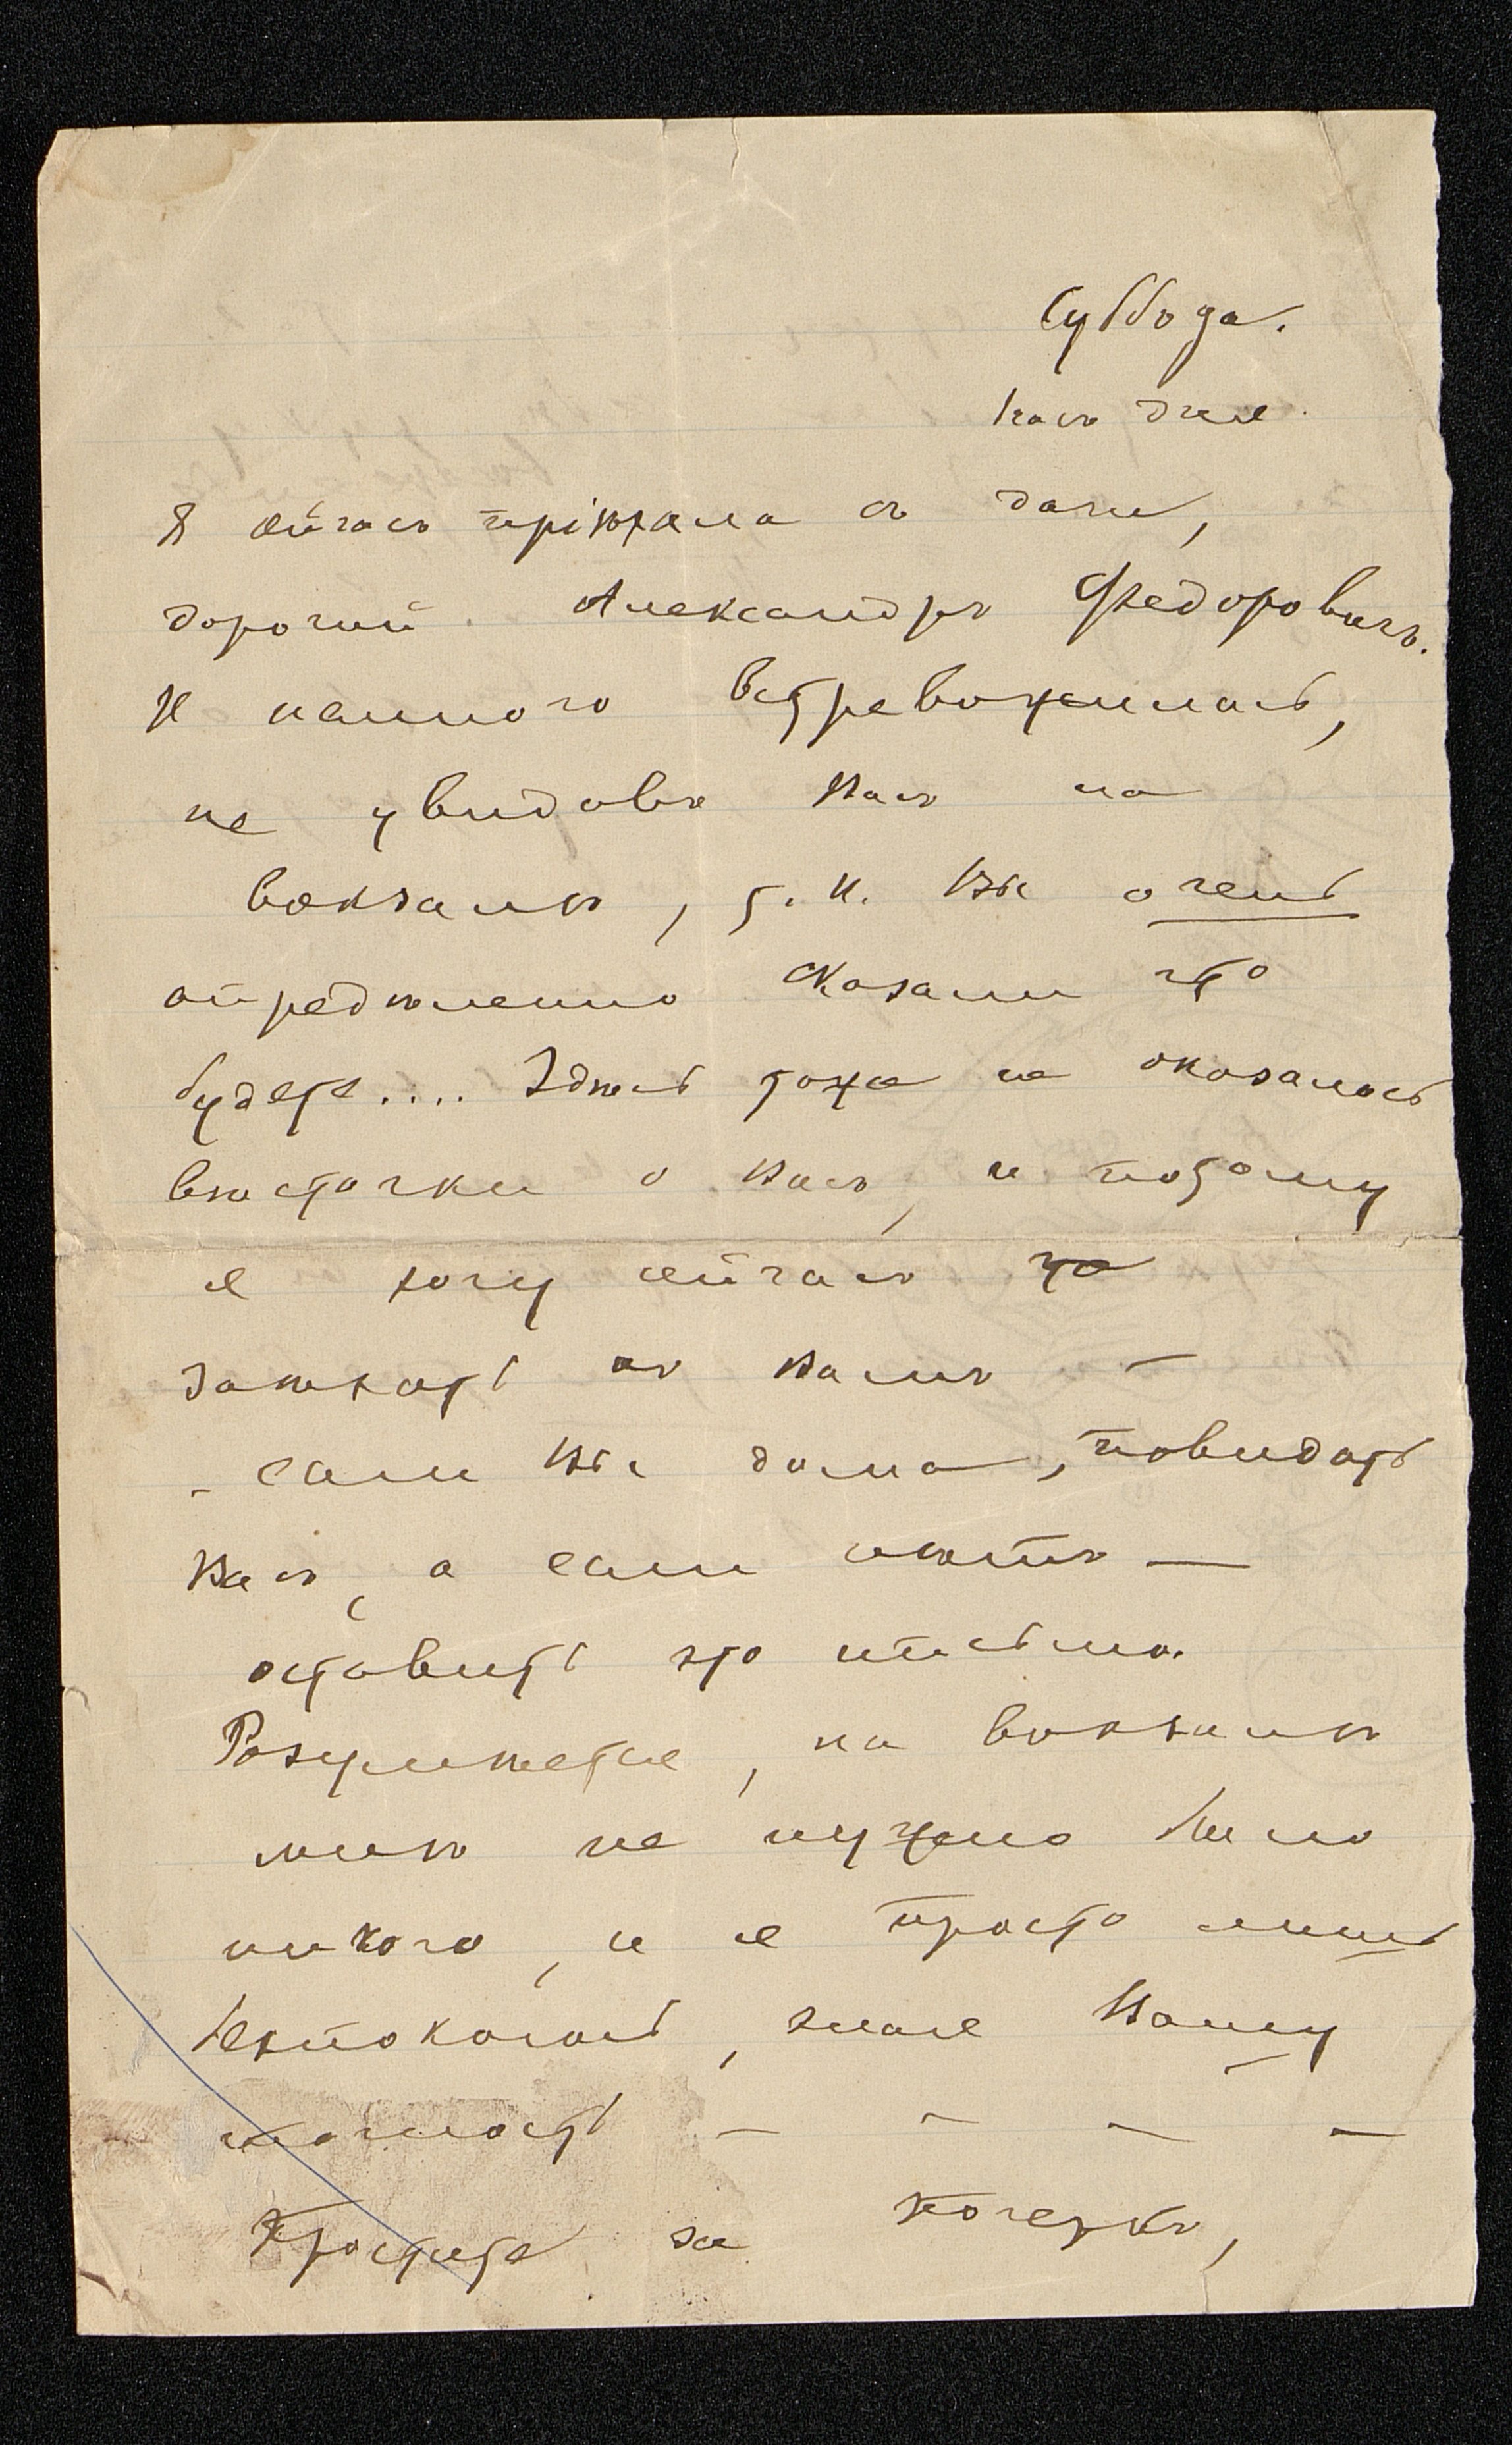 Суббота.
Часъ дня.
Я сейчасъ пріѣхала съ дачи,
дорогой Александръ Федоровичъ.
Я немного встревожилась,
не увидавъ Васъ на
вокзалѣ, т. к. Вы очень
опредѣленно сказали что
будете.... Здѣсь тоже не оказалось
вѣсточки о Васъ, и потому
я хочу сейчасъ
заѣхать къ Вамъ —
- если Вы дома, повидать
Васъ, а если нѣтъ —
оставить это письмо.
Разумѣется, на вокзалѣ
мнѣ не нужно было
никого, и я просто лишь
безпокоюсь, зная Вашу
точность — — — —
Простите за почеркъ,